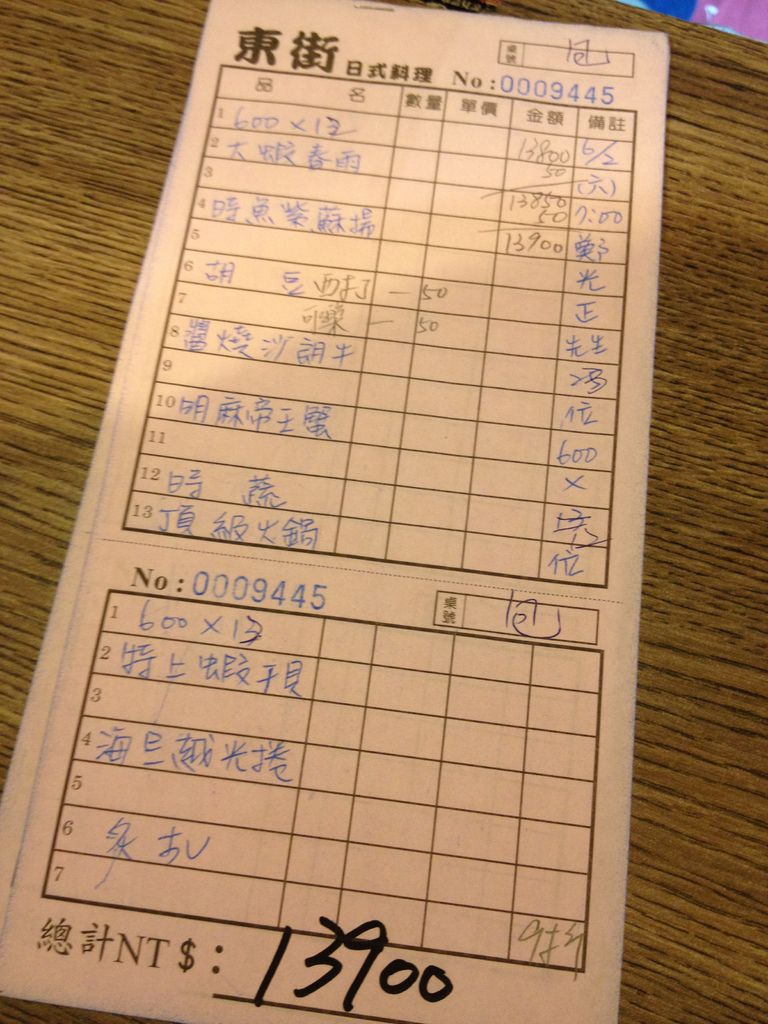 東街 日式料理 No:0009445
桌號
品名 數量 單價 金額 備註
1 600 x 13 13800 6/2
2 大蝦春雨 50 (六)
3 13850 7:00
4 時魚紫蘇揚 50 鄭
5 13900 光
6 胡 豆 西打 — 50 正
7 可樂 — 50 先生
8 醬燒沙朗牛
9 位
10 明麻帝王蟹 600
11 x
12 時 蔬
13 頂級火鍋 位
No:0009445
桌號
1 600 x 13
2 特上蝦干貝
3
4 海旦越光捲
5
6
7
總計NT$: 13900